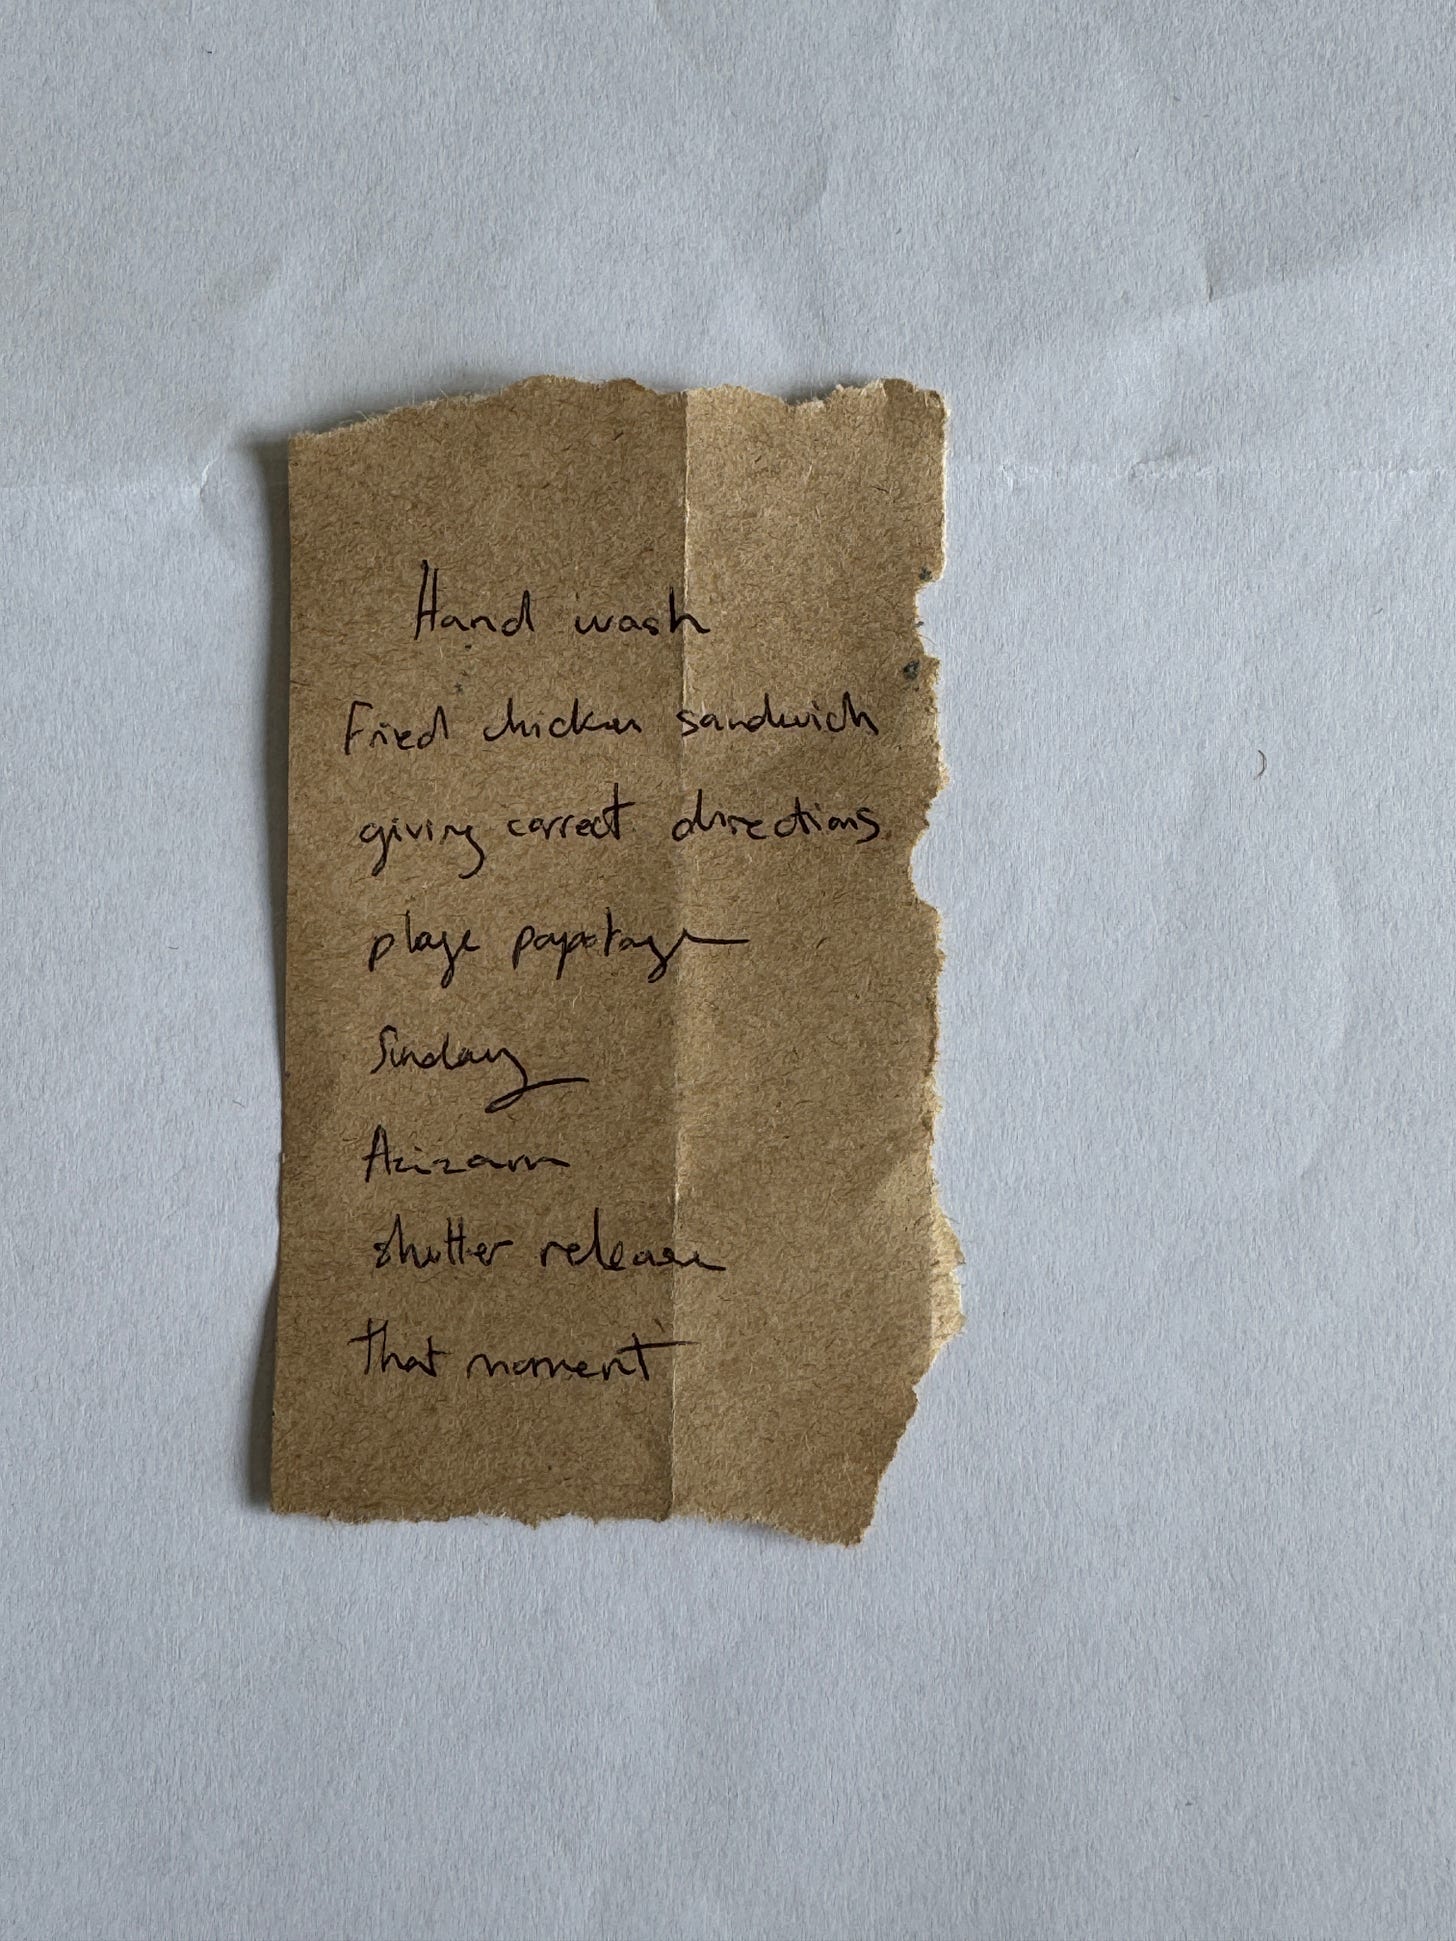 Hand wash
Fried chicken sandwich
giving correct directions
plage papotage
Sunday
Azizam
shutter release
that moment